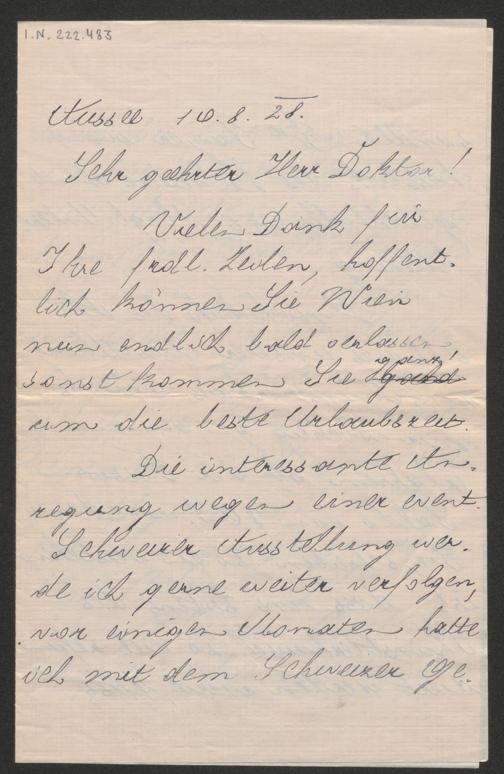 I.N. 222.483
Aussee 10.8.28.
Sehr geehrter Herr Doktor!
Vielen Dank für
Ihre frdl. Zeilen, hoffent-
lich können Sie Wien
nun endlich bald verlassen
sonst kommen Sie ganz
um die beste Urlaubszeit.
Die interessante An-
regung wegen einer event.
Schweizer Ausstellung wer-
de ich gerne weiter verfolgen,
vor einigen Monaten hatte
ich mit dem Schweizer Ge-